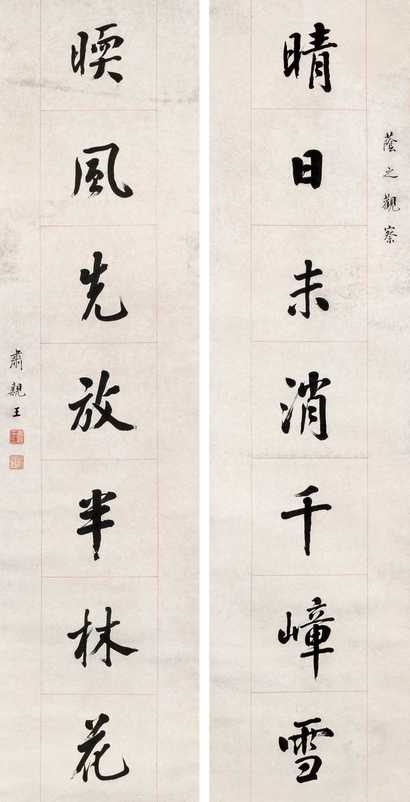 蔭之觀察
晴日未消千嶂雪
暝風先放半林花
肅親王